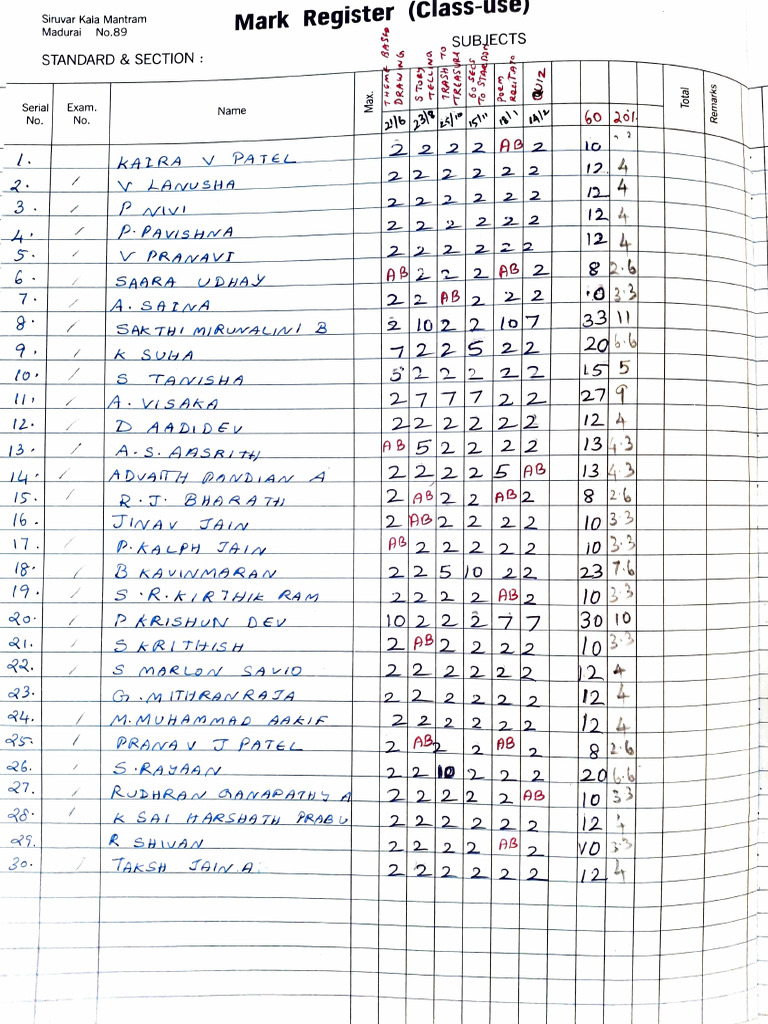 Siruvar Kala Mantram
Madurai No.89
Mark Register (Class-use)
STANDARD & SECTION :
SUBJECTS
Serial No. Exam. No. Name Max. THEME BASED DRAWING STORY TELLING TRASH TO TREASURE 60 SECS TO STARDOM POEM RECITATO QUIZ Total Remarks
21/6 23/8 25/10 15/11 18/1 14/2 60 20%
1. KAIRA V PATEL 2 2 2 2 AB 2 10
2. V LANUSHA 2 2 2 2 2 2 12 4
3. P NIVI 2 2 2 2 2 2 12 4
4. P. PAVISHNA 2 2 2 2 2 2 12 4
5. V PRANAVI 2 2 2 2 2 2 12 4
6. SAARA UDHAY AB 2 2 2 AB 2 8 2.6
7. A. SAINA 2 2 AB 2 2 2 10 3.3
8. SAKTHI MIRUNALINI B 2 10 2 2 10 7 33 11
9. K SUHA 7 2 2 5 2 2 20 6.6
10. S TANISHA 5 2 2 2 2 2 15 5
11. A. VISAKA 2 7 7 7 2 2 27 9
12. D AADIDEV 2 2 2 2 2 2 12 4
13. A.S. AASRITH AB 5 2 2 2 2 13 4.3
14. ADVAITH PANDIAN A 2 2 2 2 5 AB 13 4.3
15. R.J. BHARATH 2 AB 2 2 AB 2 8 2.6
16. JINAV JAIN 2 AB 2 2 2 2 10 3.3
17. P. KALPH JAIN AB 2 2 2 2 2 10 3.3
18. B KAVINMARAN 2 2 5 10 2 2 23 7.6
19. S.R. KIRTHIK RAM 2 2 2 2 AB 2 10 3.3
20. P KRISHUN DEV 10 2 2 2 7 7 30 10
21. S KRITHISH 2 AB 2 2 2 2 10 3.3
22. S MARLON SAVIO 2 2 2 2 2 2 12 4
23. G. MITHRANRAJA 2 2 2 2 2 2 12 4
24. M. MUHAMMAD AAKIF 2 2 2 2 2 2 12 4
25. PRANAV J PATEL 2 AB 2 2 AB 2 8 2.6
26. S. RAYAAN 2 2 10 2 2 2 20 6.6
27. RUDHRAN GANAPATHY A 2 2 2 2 2 AB 10 3.3
28. K SAI HARSHATH PRABU 2 2 2 2 2 2 12 4
29. R SHIVAN 2 2 2 2 AB 2 10 3.3
30. TAKSH JAIN. A. 2 2 2 2 2 2 12 4